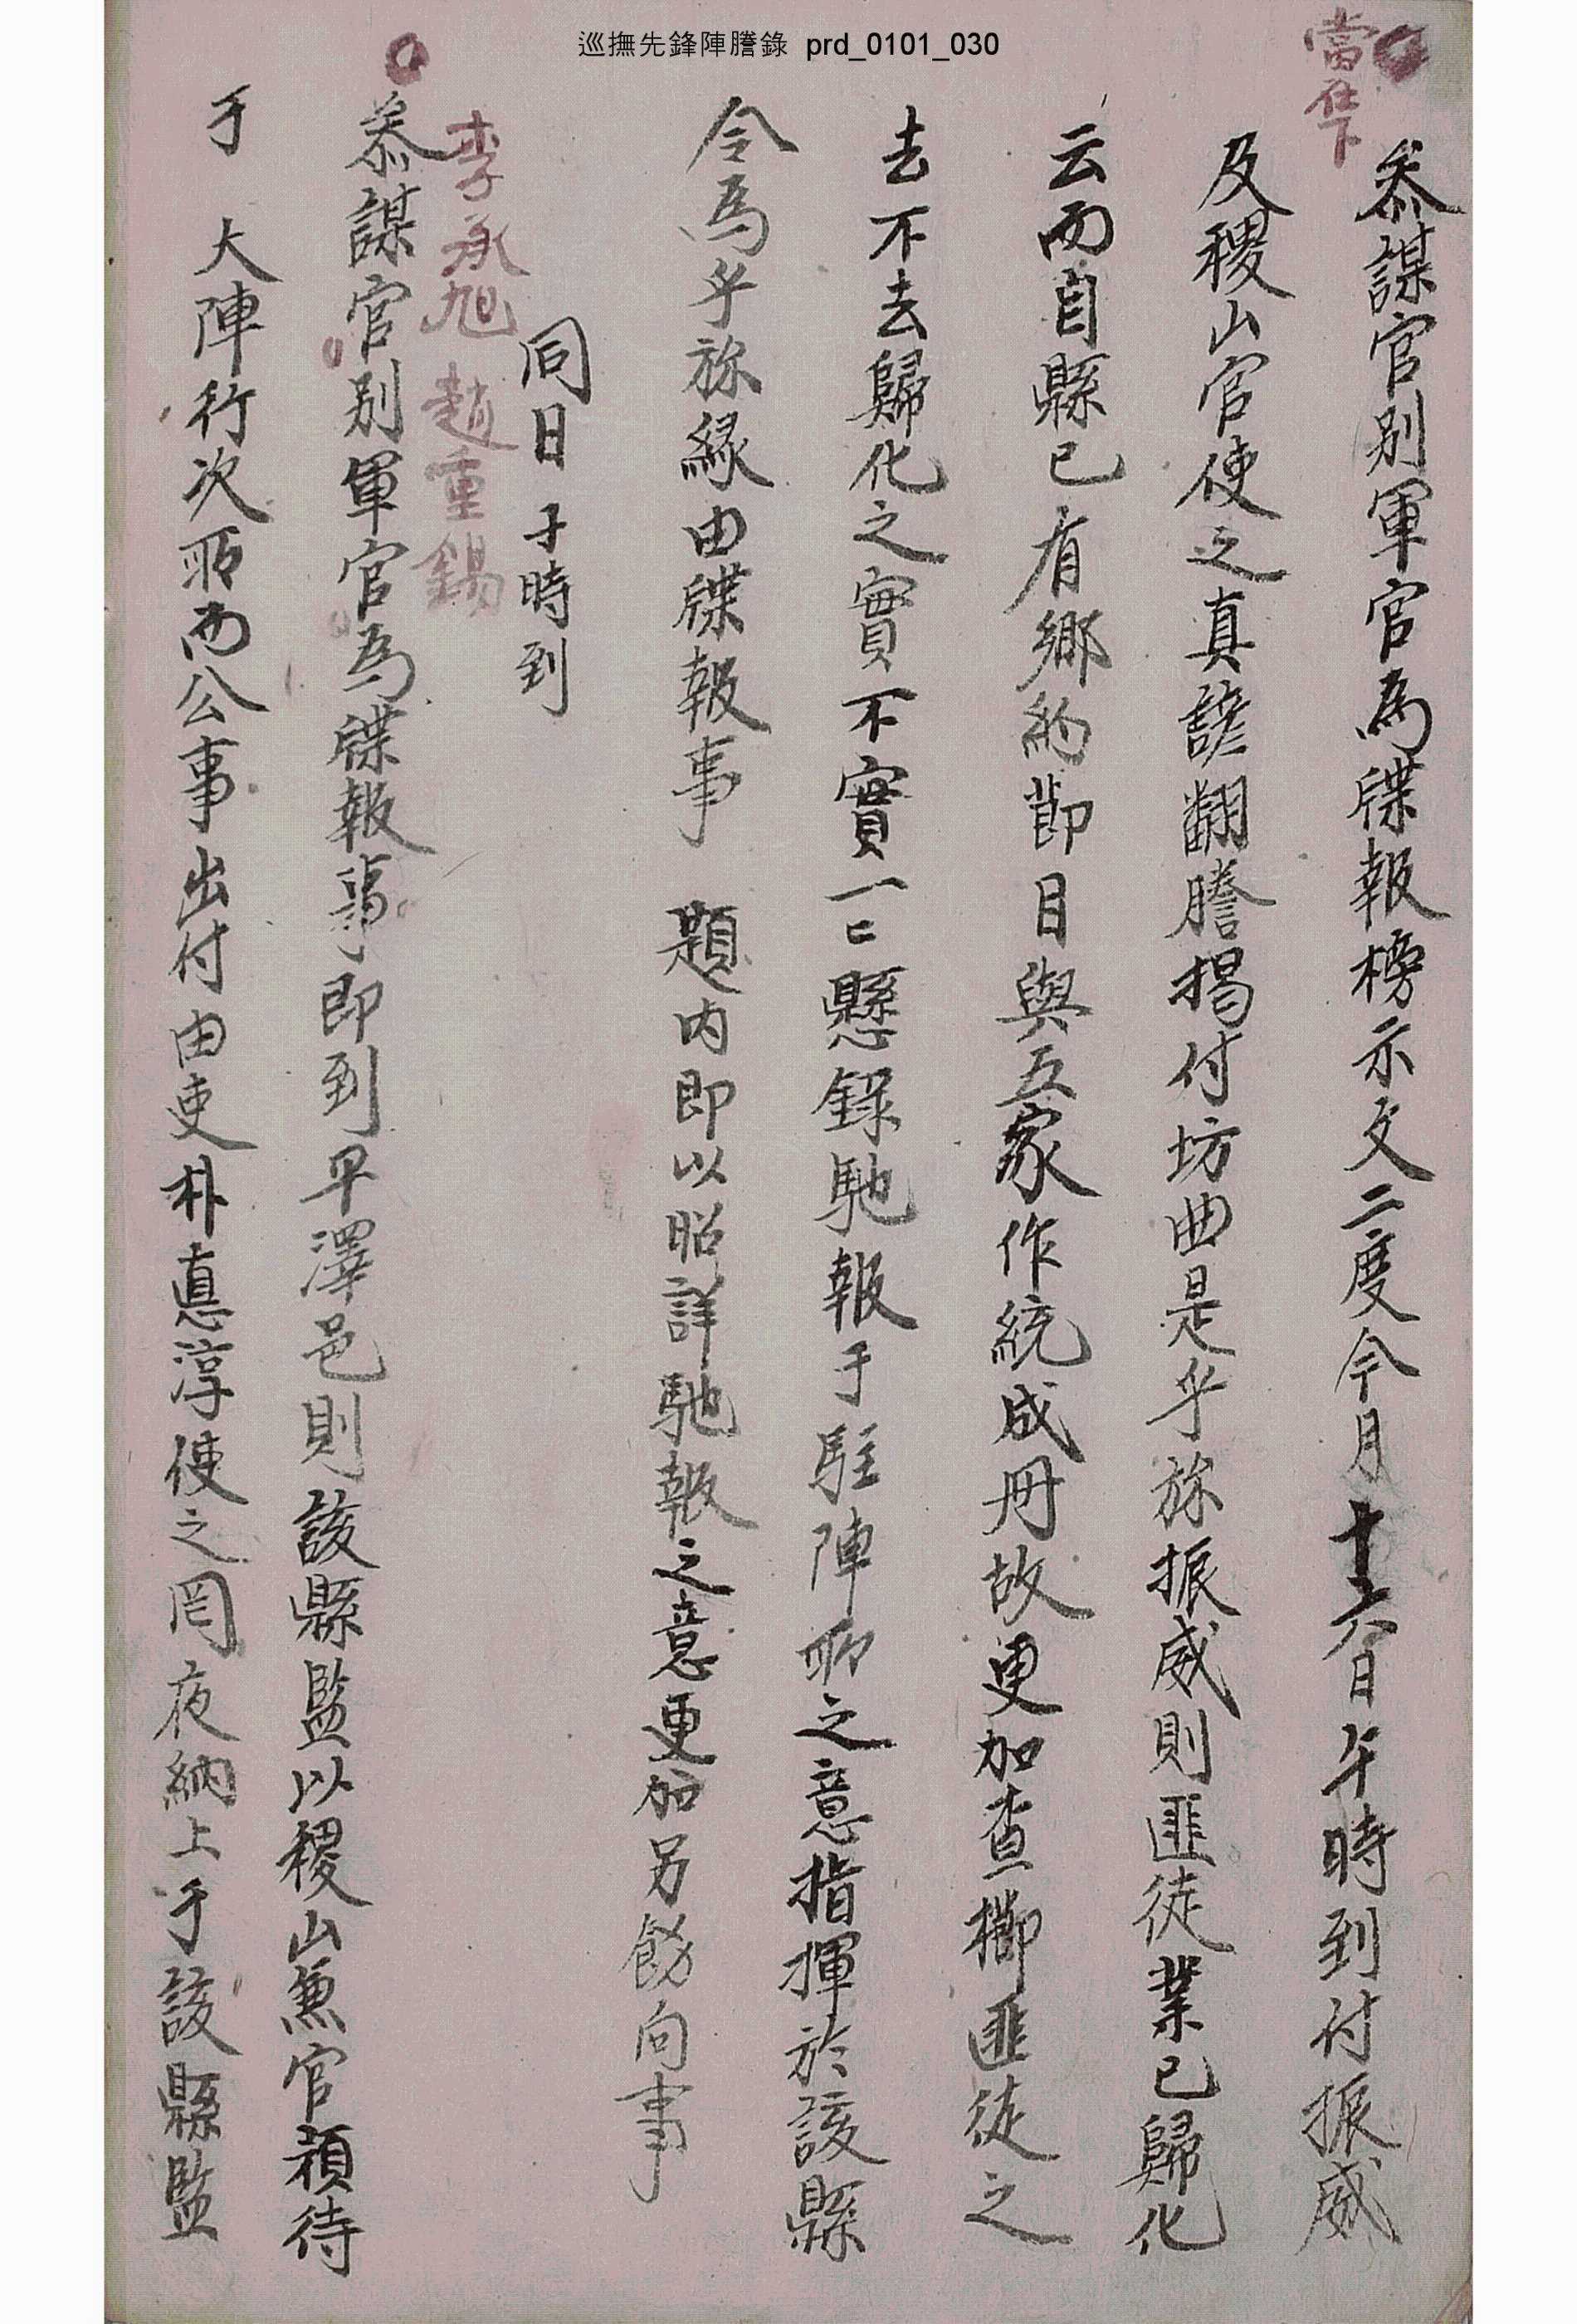 巡撫先鋒陣謄錄 prd_0101_030
當在下
叅謀官別軍官爲牒報榜示文二度今月十六日午時到付振威
及稷山官使之眞諺翻謄揭付坊曲是乎旀振威則匪徒業已歸化
云而自縣已有鄕約節目與五家作統成冊故更加查櫛匪徒之
去不去歸化之實不實一一懸錄馳報于駐陣所之意指揮於該縣
令爲乎旀緣由牒報事 題內即以昭詳馳報之意更加另飭向事
同日子時到
李承旭 趙重錫
叅謀官別軍官爲牒報事即到平澤邑則該縣監以稷山兼官預待
于 大陣行次所而公事出付由吏朴悳淳使之罔夜納上于該縣監